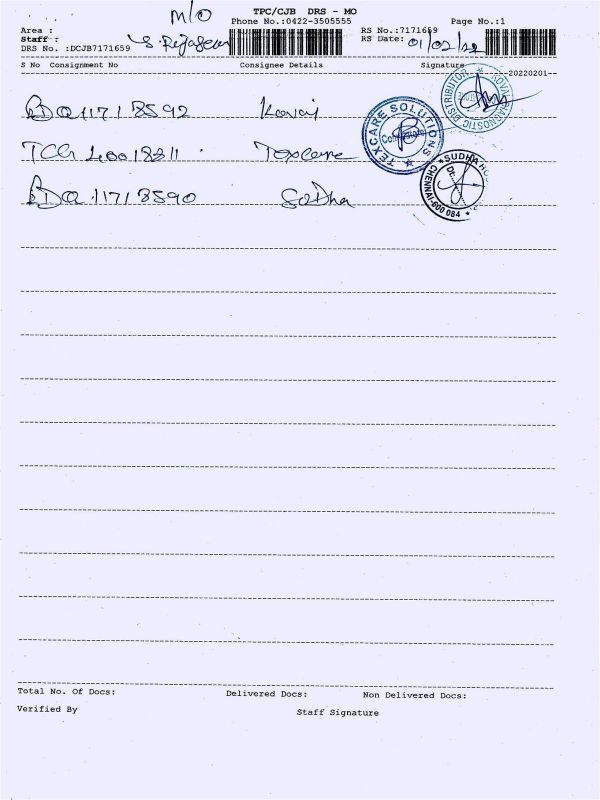 M/O
TPC/CJB DRS - MO
Phone No.:0422-3505555 Page No.:1
Area : RS No.:7171659
Staff : RS Date: 01/02/22
DRS No. :DCJB7171659
S No Consignment No Consignee Details Signature
--20220201--
11718592 Kovai
KOVAI DIAGNOSTIC DISTRIBUTOR
TCG 40018811 Texcare
TEXCARE SOLUTIONS
Coimbatore
11718590 SuDha
SUDHA
CHENNAI-600 084
Total No. Of Docs: Delivered Docs: Non Delivered Docs:
Verified By Staff Signature